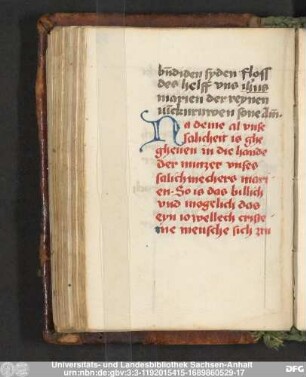 bñdiden syden floss
des helff vns ihus
marien der reynen
vsskurnrwen sone Am̄.
Na deme al vnse
salicheit is ghe
gheuen in die hande
der mutzer vnses
salichmechers mari
en. So is das billich
vnd mogelich das
eyn iowellech criste
ne mensche sich zu
Universitäts- und Landesbibliothek Sachsen-Anhalt
urn:nbn:de:gbv:3:3-1192015415-1689860529-17
DFG